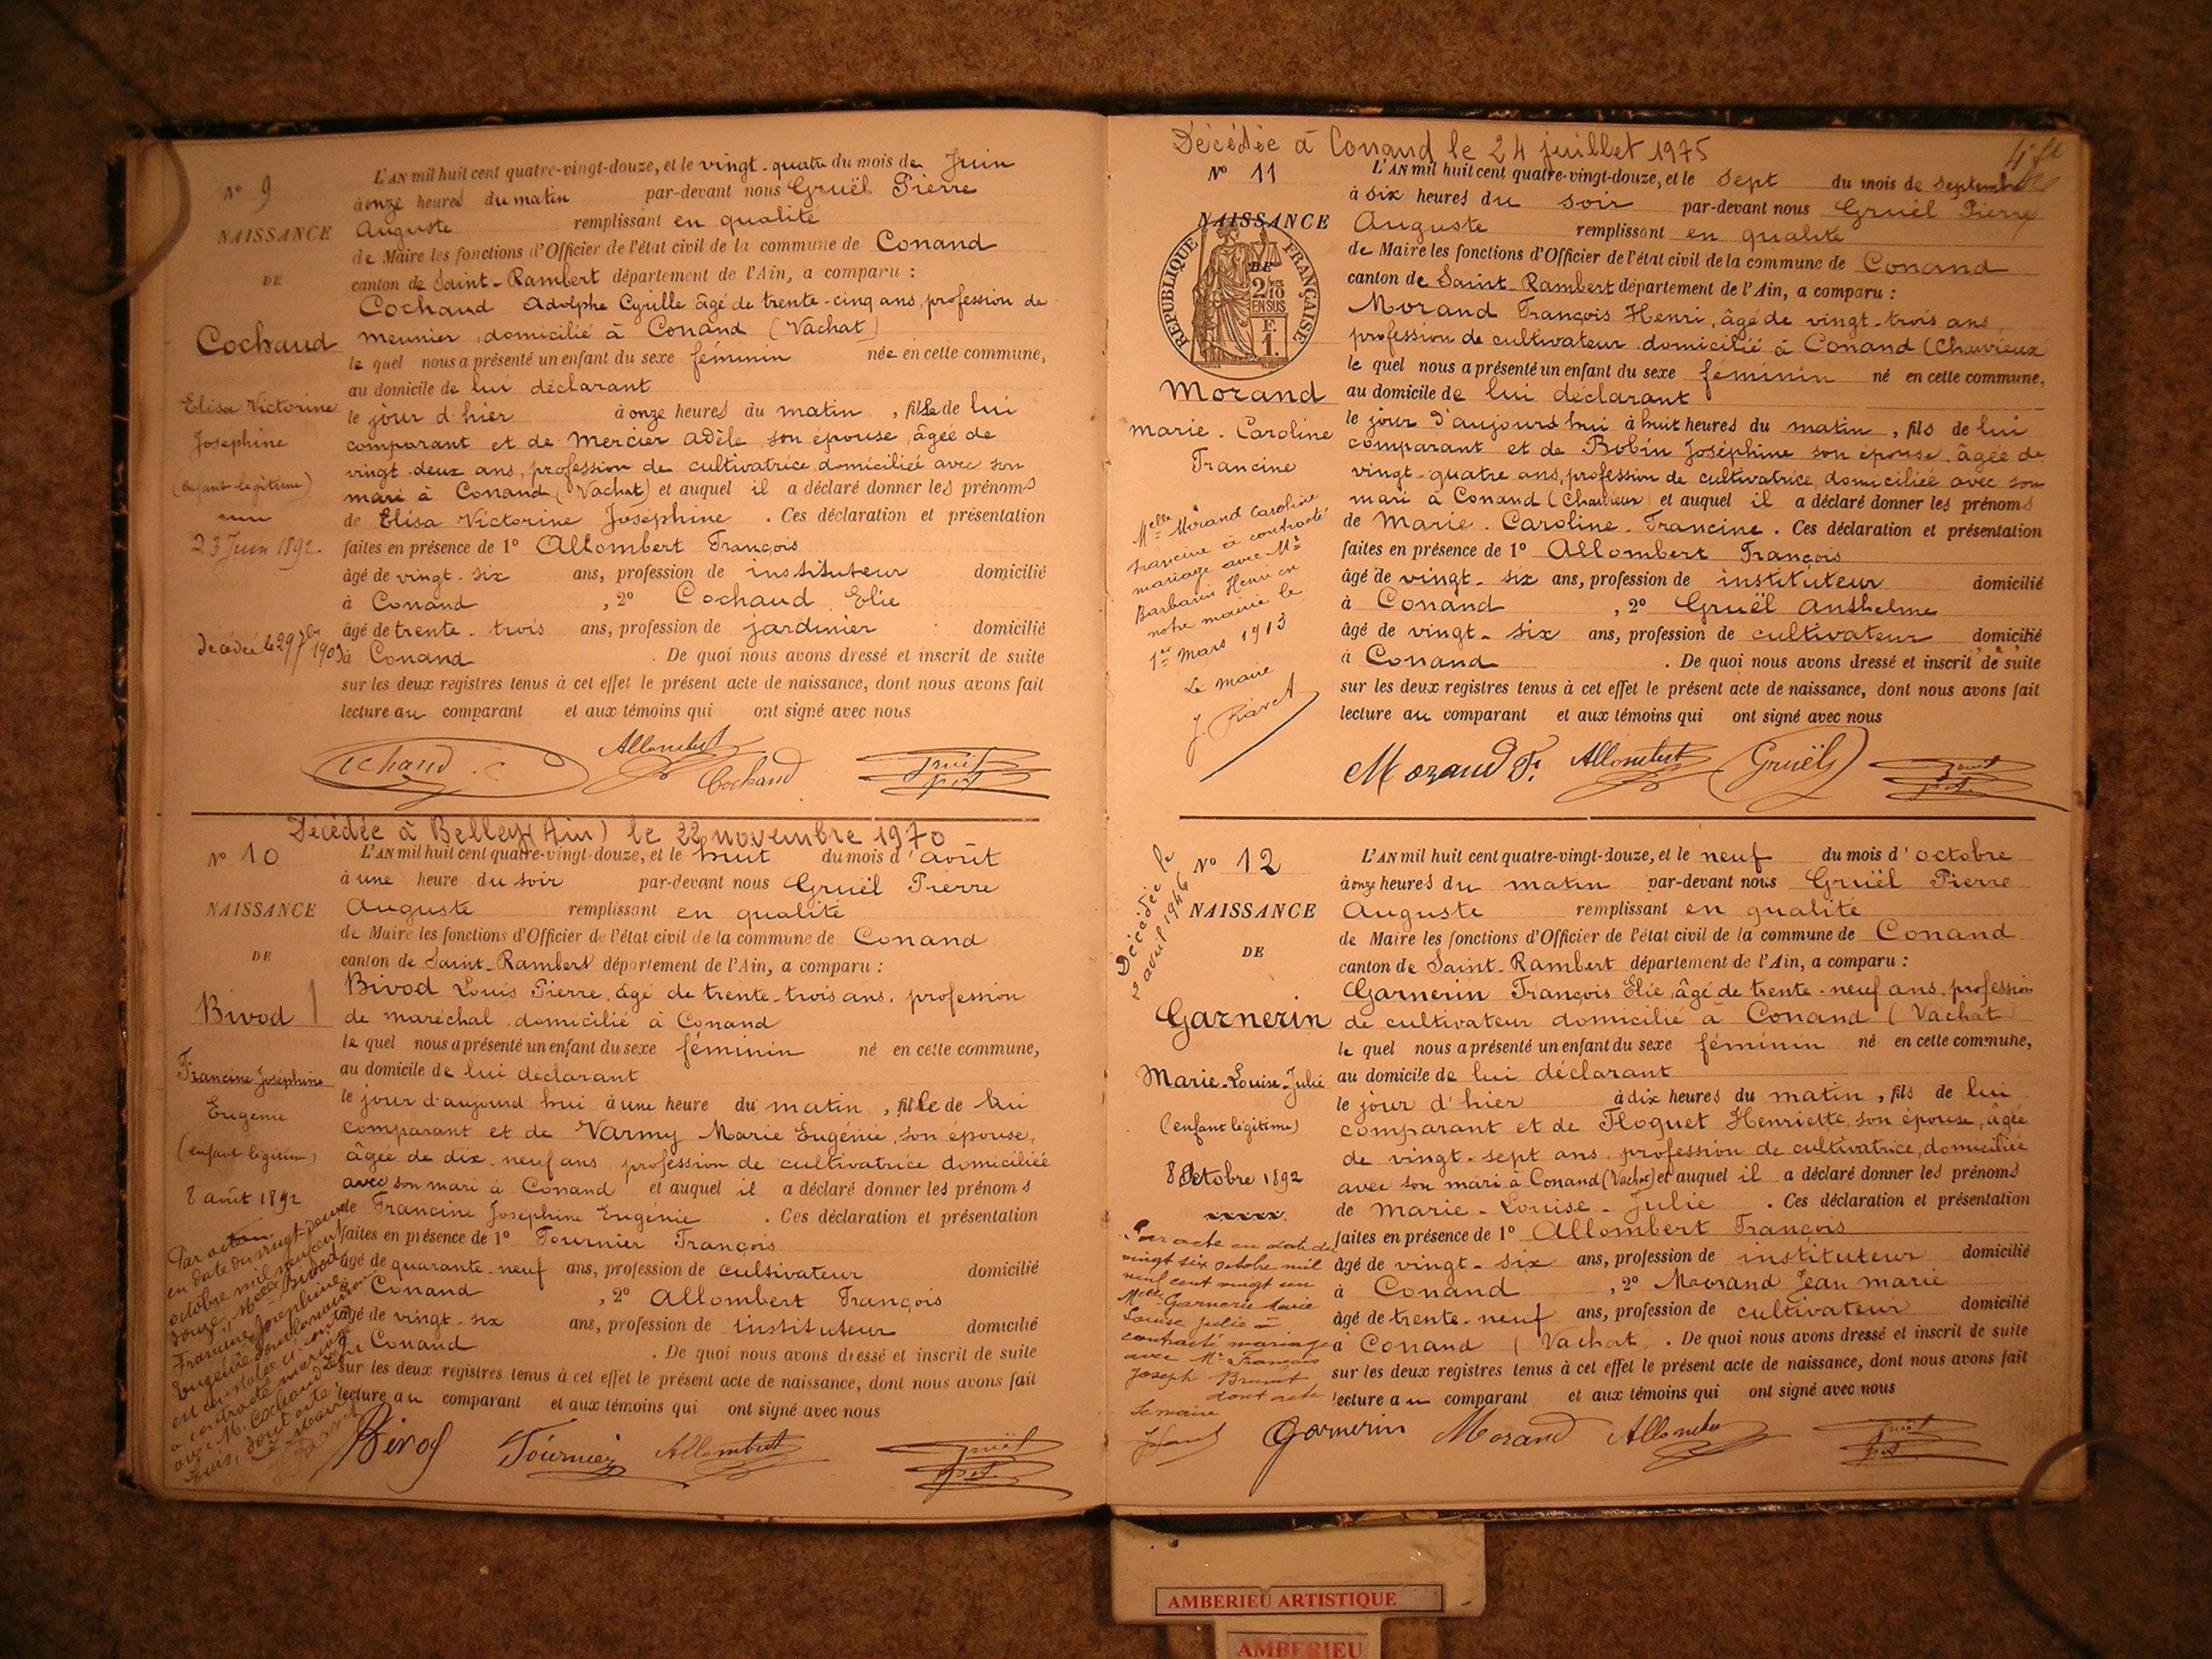 N° 9
NAISSANCE
DE
Cochaud
Elisa Victorine
Josephine
(enfant légitime)
23 Juin 1892.
décédée le 29 7bre 1903
L'AN mil huit cent quatre-vingt-douze, et le vingt-quatre du mois de Juin
à onze heures du matin par-devant nous Gruël Pierre
Auguste remplissant en qualité
de Maire les fonctions d'Officier de l'état civil de la commune de Conand
canton de Saint-Rambert département de l'Ain, a comparu :
Cochaud Adolphe Cyrille âgé de trente-cinq ans, profession de
meunier, domicilié à Conand (Vachat)
le quel nous a présenté un enfant du sexe féminin née en cette commune,
au domicile de lui déclarant
le jour d'hier à onze heures du matin, fille de lui
comparant et de Mercier Adèle son épouse, âgée de
vingt-deux ans, profession de cultivatrice domiciliée avec son
mari à Conand (Vachat) et auquel il a déclaré donner les prénoms
de Elisa Victorine Josephine . Ces déclaration et présentation
faites en présence de 1° Allombert François
âgé de vingt-six ans, profession de instituteur domicilié
à Conand , 2° Cochaud Elie
âgé de trente-trois ans, profession de jardinier domicilié
à Conand . De quoi nous avons dressé et inscrit de suite
sur les deux registres tenus à cet effet le présent acte de naissance, dont nous avons fait
lecture au comparant et aux témoins qui ont signé avec nous
Allombert
Cochaud
Décédée à Belley (Ain) le 22 novembre 1970
N° 10
NAISSANCE
DE
Bivod
Francine Joséphine
Eugénie
(enfant légitime)
8 août 1892
L'AN mil huit cent quatre-vingt-douze, et le huit du mois d'août
à une heure du soir par-devant nous Gruël Pierre
Auguste remplissant en qualité
de Maire les fonctions d'Officier de l'état civil de la commune de Conand
canton de Saint-Rambert département de l'Ain, a comparu :
Bivod Louis Pierre, âgé de trente-trois ans, profession
de maréchal domicilié à Conand
le quel nous a présenté un enfant du sexe féminin né en cette commune,
au domicile de lui déclarant
le jour d'aujourd'hui à une heure du matin, fille de lui
comparant et de Varmy Marie Eugénie, son épouse,
âgée de dix-neuf ans profession de cultivatrice domiciliée
avec son mari à Conand et auquel il a déclaré donner les prénoms
de Francine Josephine Eugénie . Ces déclaration et présentation
faites en présence de 1° Tournier François
âgé de quarante-neuf ans, profession de cultivateur domicilié
à Conand , 2° Allombert François
âgé de vingt-six ans, profession de instituteur domicilié
à Conand . De quoi nous avons dressé et inscrit de suite
sur les deux registres tenus à cet effet le présent acte de naissance, dont nous avons fait
lecture au comparant et aux témoins qui ont signé avec nous
en date du vingt-deux
octobre mil neuf cent
douze, Melle Bivod
Francine Josephine
Eugénie
a contracté mariage
avec M. Cochaud
Bivod Tournier Allombert
Décédée à Conand le 24 juillet 1975
N° 11
NAISSANCE
DE
REPUBLIQUE FRANÇAISE
2/10
EN SUS
F.
1.
Morand
Marie-Caroline
Francine
Melle Morand Caroline
Francine a contracté
mariage avec Mr
Barbarin Henri en
notre mairie le
1er Mars 1913
Le maire
L'AN mil huit cent quatre-vingt-douze, et le sept du mois de septembre
à six heures du soir par-devant nous Gruël Pierre
Auguste remplissant en qualité
de Maire les fonctions d'Officier de l'état civil de la commune de Conand
canton de Saint-Rambert département de l'Ain, a comparu :
Morand François Henri, âgé de vingt-trois ans
profession de cultivateur domicilié à Conand (Charvieux
le quel nous a présenté un enfant du sexe féminin né en cette commune,
au domicile de lui déclarant
le jour d'aujourd'hui à huit heures du matin, fils de lui
comparant et de Bobin Joséphine son épouse, âgée de
vingt-quatre ans, profession de cultivatrice, domiciliée avec son
mari à Conand (Charvieux) et auquel il a déclaré donner les prénoms
de Marie-Caroline-Francine . Ces déclaration et présentation
faites en présence de 1° Allombert François
âgé de vingt-six ans, profession de instituteur domicilié
à Conand , 2° Gruël Anthelme
âgé de vingt-six ans, profession de cultivateur domicilié
à Conand . De quoi nous avons dressé et inscrit de suite
sur les deux registres tenus à cet effet le présent acte de naissance, dont nous avons fait
lecture au comparant et aux témoins qui ont signé avec nous
Morand F. Allombert Gruël
Décédée le
2 avril 1946
N° 12
NAISSANCE
DE
Garnerin
Marie-Louise-Julie
(enfant légitime)
8 Octobre 1892
L'AN mil huit cent quatre-vingt-douze, et le neuf du mois d'octobre
à onze heures du matin par-devant nous Gruël Pierre
Auguste remplissant en qualité
de Maire les fonctions d'Officier de l'état civil de la commune de Conand
canton de Saint-Rambert département de l'Ain, a comparu :
Garnerin François Elie, âgé de trente-neuf ans, profession
de cultivateur domicilié à Conand (Vachat
le quel nous a présenté un enfant du sexe féminin né en cette commune,
au domicile de lui déclarant
le jour d'hier à dix heures du matin, fils de lui
comparant et de Floquet Henriette, son épouse, âgée
de vingt-sept ans, profession de cultivatrice, domiciliée
avec son mari à Conand (Vachat) et auquel il a déclaré donner les prénoms
de Marie-Louise-Julie . Ces déclaration et présentation
faites en présence de 1° Allombert François
âgé de vingt-six ans, profession de instituteur domicilié
à Conand , 2° Morand Jean Marie
âgé de trente-neuf ans, profession de cultivateur domicilié
à Conand (Vachat) . De quoi nous avons dressé et inscrit de suite
sur les deux registres tenus à cet effet le présent acte de naissance, dont nous avons fait
lecture au comparant et aux témoins qui ont signé avec nous
Par acte en date du
vingt six octobre mil
neuf cent vingt un
Melle Garnerin Marie
Louise Julie a
contracté mariage
avec Mr François
Joseph Brunet
dont acte
Le maire
Garnerin Morand Allombert
AMBERIEU ARTISTIQUE
AMBERIEU